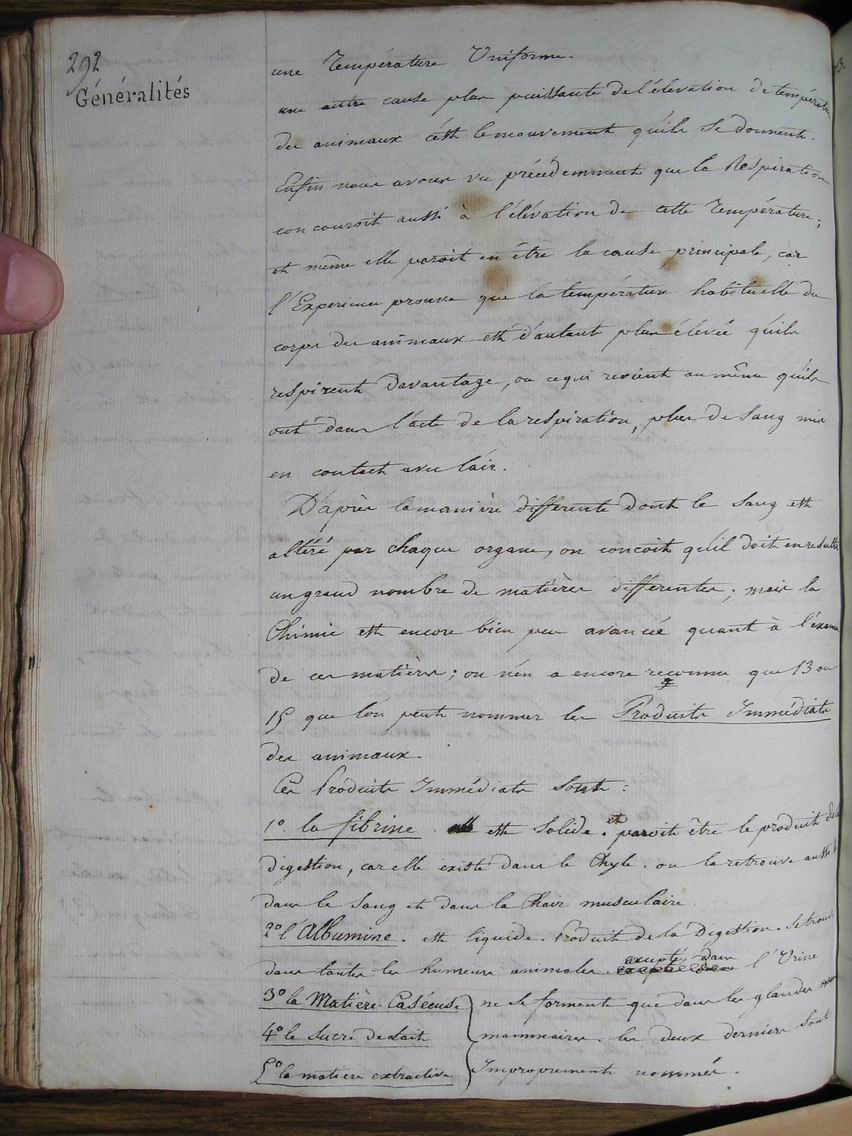 292
Généralités
une Température Uniforme.
une autre cause plus puissante de l'élévation de température
des animaux c'est le mouvement qu'ils se donnent.
Enfin nous avons vu précédemment que la Respiration
concouroit aussi à l'élévation de cette Température;
et même elle paroit en être la cause principale, car
l'Experience prouve que la température habituelle du
corps des animaux est d'autant plus élevée qu'ils
respirent davantage, ou ce qui revient au même qu'ils
ont dans l'acte de la respiration, plus de sang mis
en contact avec l'air.
D'après la manière differente dont le sang est
altéré par chaque organe, on concoit qu'il doit en resulter
un grand nombre de matières differentes; mais la
Chimie est encore bien peu avancée quant à l'examen
de ces matières; on n'en a encore reconnu que 13 ou
15 que l'on peut nommer les Produits Immédiats
des animaux.
Ces Produits Immédiats sont:
1º. la fibrine. est solide. et paroit être le produit de la
digestion, car elle existe dans le Chyle. on la retrouve aussi
dans le sang et dans la Chair musculaire.
2º l'Albumine. est liquide. Produit de la Digestion. se trouve
dans toutes les humeurs animales excepté dans l'Urine
3º la Matière Caséeuse ne se forment que dans les glandes
4º le Sucre de Lait mammaires. les deux derniers sont
5º la matiere extractive Improprement nommés.